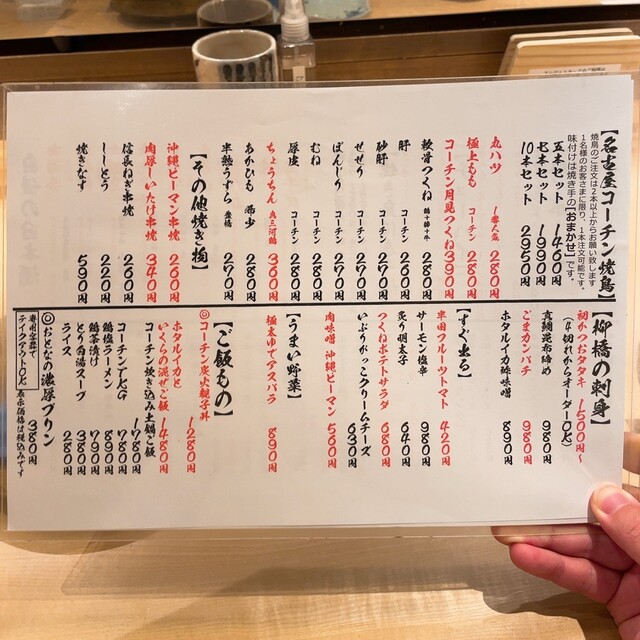 【名古屋コーチン焼鳥】
焼鳥のご注文は2本以上からお願い致します
1名様のお客さまに限り、1本注文可能です。
味付けは焼き手の【おまかせ】です。
五本セット 1460円
七本セット 1990円
10本セット 2950円
丸ハツ 1番人気 280円
極上もも コーチン 280円
コーチン月見つくね 390円
軟骨つくね 鶏+豚+牛 280円
肝 コーチン 260円
砂肝 コーチン 270円
せせり コーチン 270円
ぼんじり コーチン 270円
むね コーチン 280円
厚皮 コーチン 280円
ちょうちん 奥三河鶏 360円
あかひも 希少 270円
半熟うずら 豊橋 270円
【その他焼き物】
沖縄ピーマン串焼 260円
肉厚しいたけ串焼 340円
信長ねぎ串焼 260円
ししとう 220円
焼きなす 590円
【柳橋の刺身】
初かつおタタキ 1500円〜
(4切れからオーダーOK)
真鯛昆布締め 980円
ごまカンパチ 980円
ホタルイカ酢味噌 890円
【すぐ出る】
半田フルーツトマト 420円
サーモン塩辛 980円
炙り明太子 640円
つくねポテトサラダ 680円
いぶりがっこクリームチーズ 630円
肉味噌 沖縄ピーマン 560円
【うまい野菜】
極太ゆでアスパラ 890円
【ご飯もの】
コーチン炭火親子丼 1280円
ホタルイカと
いくらの混ぜご飯 1480円
コーチン炊き込み土鍋ご飯 1780円
コーチンでTKG 780円
鶏塩ラーメン 890円
鶏茶漬け 790円
とり白湯スープ 380円
ライス 280円
おとなの濃厚プリン 380円
専用容器で
テイクアウトOK
表示価格は税込みです